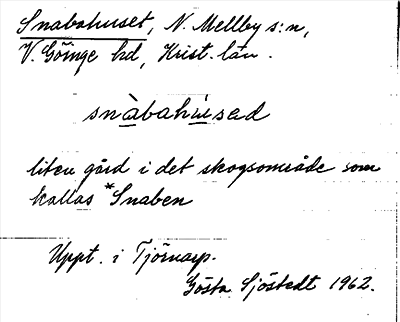 Snabahuset, N. Mellby s:n,
V. Göinge hd, Krist. län.
snàbahúsəd
liten gård i det skogsområde som
kallas *Snaben
Uppt. i Tjörnarp.
Gösta Sjöstedt 1962.